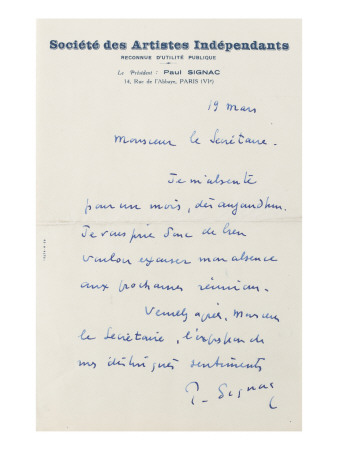 Société des Artistes Indépendants
RECONNUE D'UTILITÉ PUBLIQUE
Le Président : Paul SIGNAC
14, Rue de l'Abbaye, PARIS (VIe)
19 mars
Monsieur le Secrétaire.
Je m'absente
pour un mois, dès aujourd'hui.
Je vous prie donc de bien
vouloir excuser mon absence
aux prochaines réunions.
Veuillez agréer, Monsieur
le Secrétaire, l'expression de
mes distingués sentiments
P. Signac